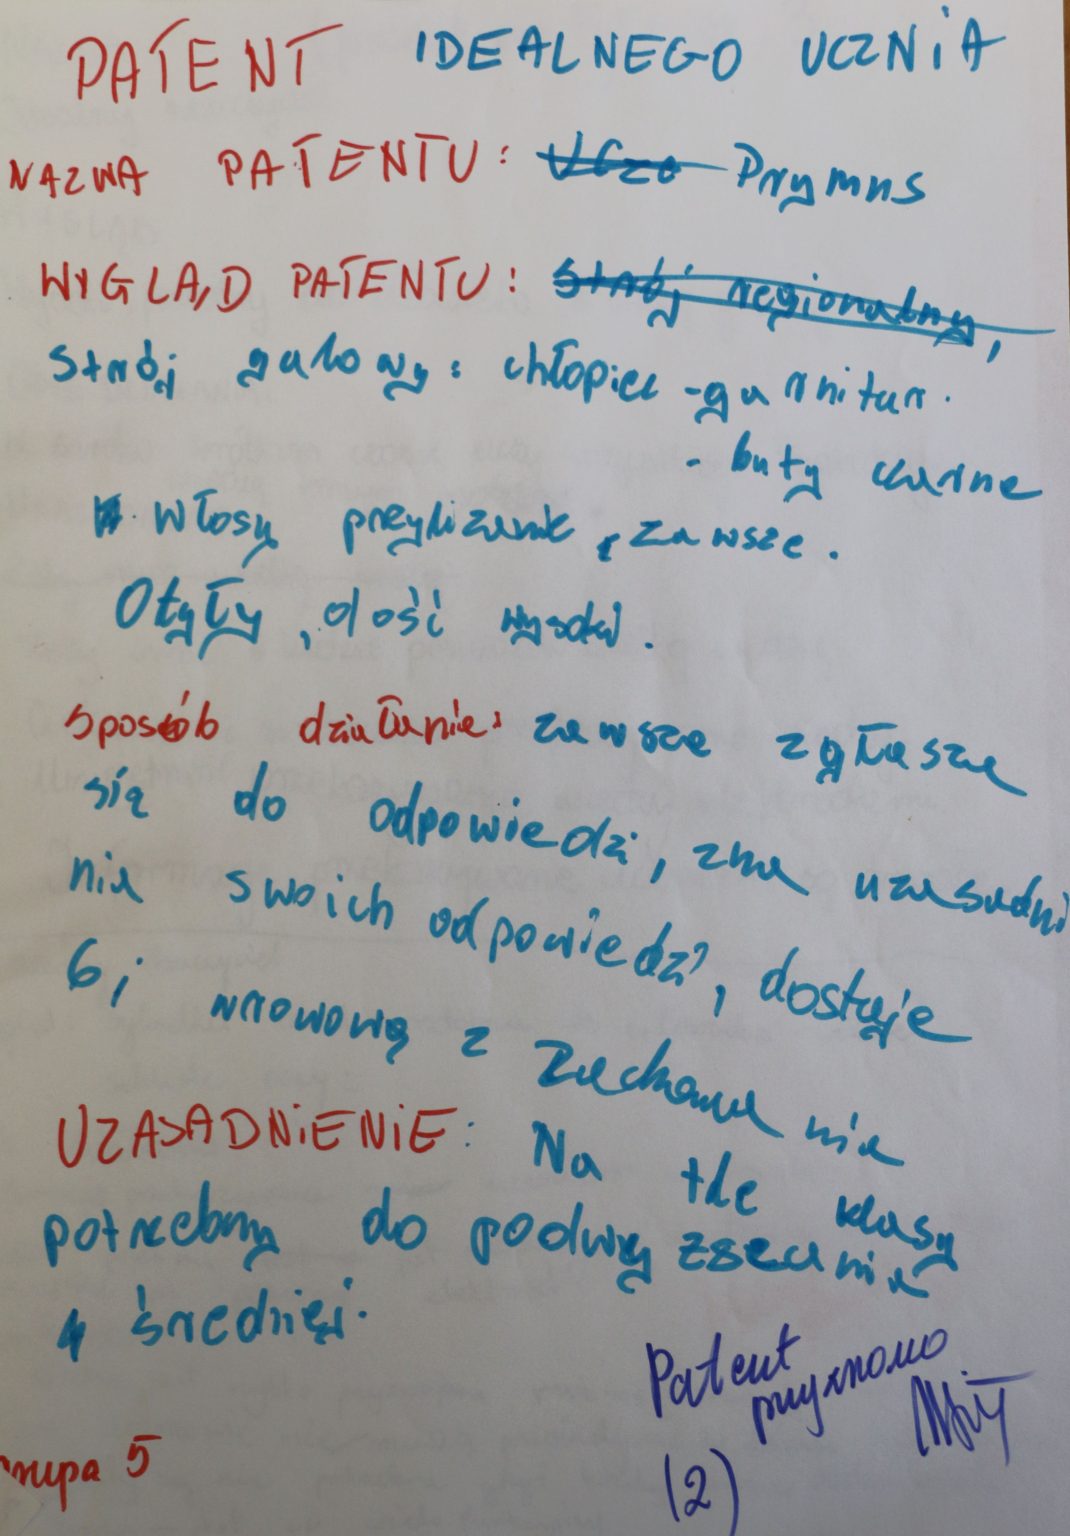 PATENT IDEALNEGO UCZNIA
NAZWA PATENTU: Uczo Prymus
WYGLĄD PATENTU: Strój regionalny,
Strój galowy: chłopiec - garnitur.
- buty czarne
włosy przylizane, zawsze.
Otyły, dość wysoki.
Sposób działanie: zawsze zgłasza
się do odpowiedzi, zna uzasadni
nia swoich odpowiedzi, dostaje
6 i wzorową z Zachowa nia
UZASADNIENIE: Na tle klasy
potrzebny do podwyższania
średniej.
Patent
przyznano
(2)
grupa 5